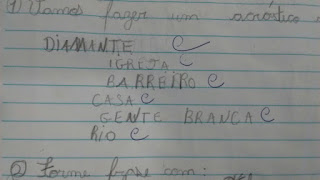 1) Vamos fazer um acróstico
DIAMANTE C
IGREJA C
BARREIRO C
CASA C
GENTE BRANCA C
RIO C
2) Forme frase com: